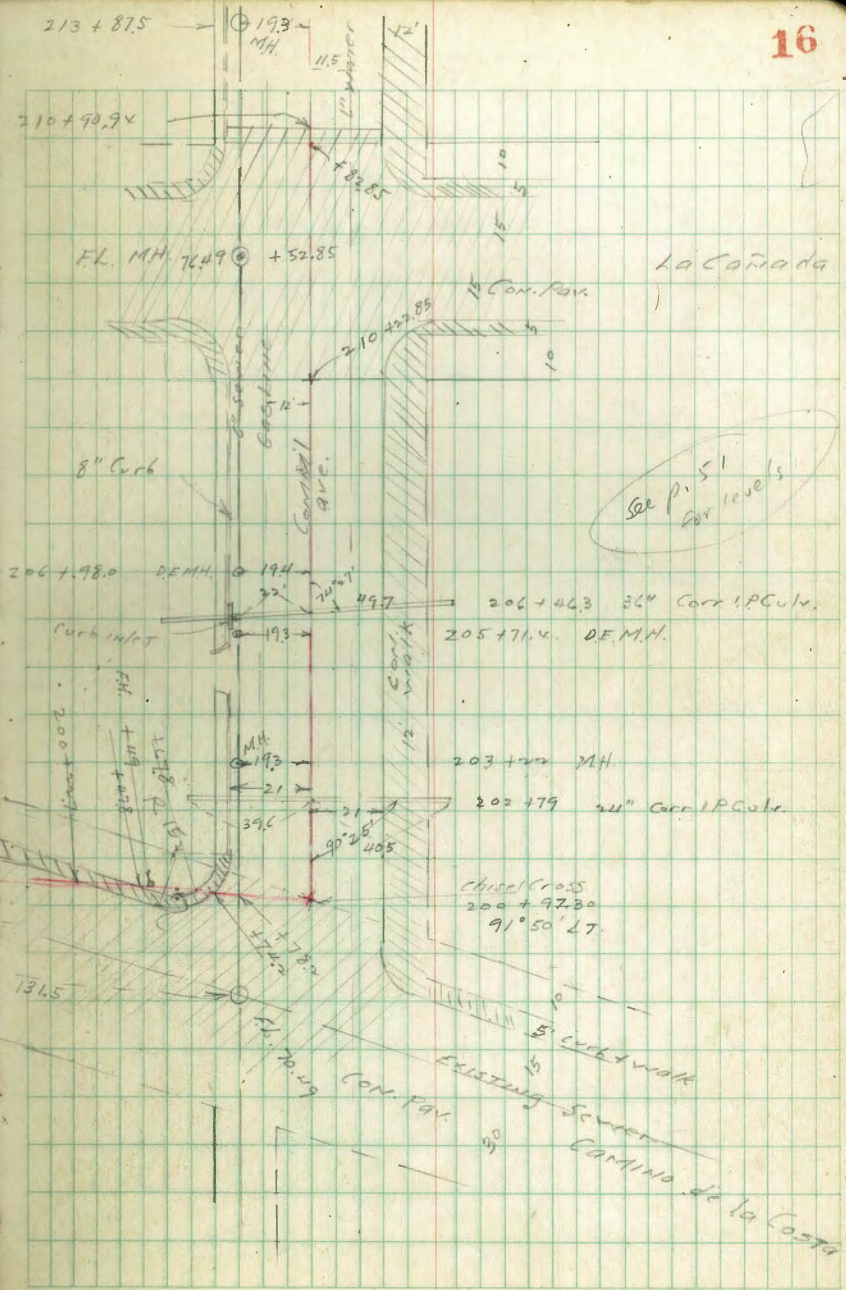 16
213 + 87.5
19.3
M.H.
11.5
6" water
12'
210 + 90.94
+ 82.85
10
5
15
F.L. M.H. 76.49
+ 52.85
La Cañada
15 Con. Pav.
210 + 22.85
5
10
12'
6" sewer
Gas line
8" Curb
Comm'l
ave.
See p. 51
for levels
206 + 98.0 D.E.M.H.
19.4
22'
74° 27'
49.7
206 + 46.3 36" Corr. I.P. Culv.
Curb inlet
19.3
205 + 71.4 D.E.M.H.
Con. walk
12'
F.H.
+ 49
M.H.
19.3
203 + 22 M.H.
21
202 + 79 24" Corr. I.P. Culv.
39.6
21
90° 25'
40.5
Chisel Cross
200 + 97.30
91° 50' LT.
131.5
10
F.L. 70.49
Con. Pav.
5' curb + walk
15
Existing Sewer
30
Camino de la Costa